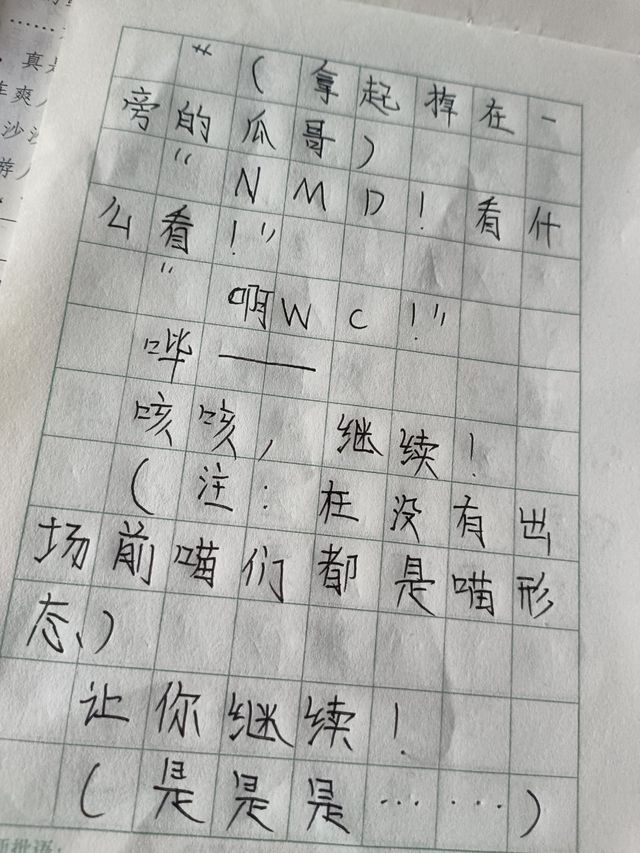 ……
真是
车爽
沙沙
游
“（拿起掉在一
旁的瓜哥）
“NMD！看什
么看！”
“啊WC！”
哔——
咳咳，继续！
（注：在没有出
场前喵们都是喵形
态、）
让你继续！
（是是是……）
批语：